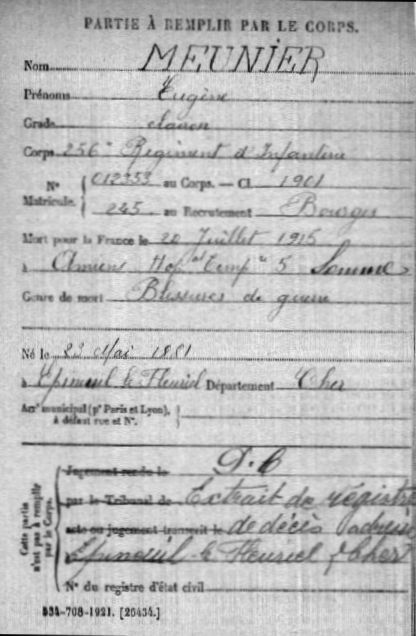 PARTIE À REMPLIR PAR LE CORPS.
Nom MEUNIER
Prénoms Eugène
Grade clairon
Corps 256e Régiment d'Infanterie
N° Matricule. { 012353 au Corps. — Cl. 1901
245 au Recrutement Bourges
Mort pour la France le 20 Juillet 1915
à Amiens Hop. Temp. 5 Somme
Genre de mort Blessures de guerre
Né le 23 Mai 1881
à Epineuil le Fleuriel Département Cher
Arrt municipal (pr Paris et Lyon),
à défaut rue et N°.
Cette partie n'est pas à remplir par le Corps.
Jugement rendu le D.C
par le Tribunal de Extrait de registre
acte ou jugement transcrit le de décès
Epineuil le Fleuriel Cher
N° du registre d'état civil
534-708-1921. [26434.]